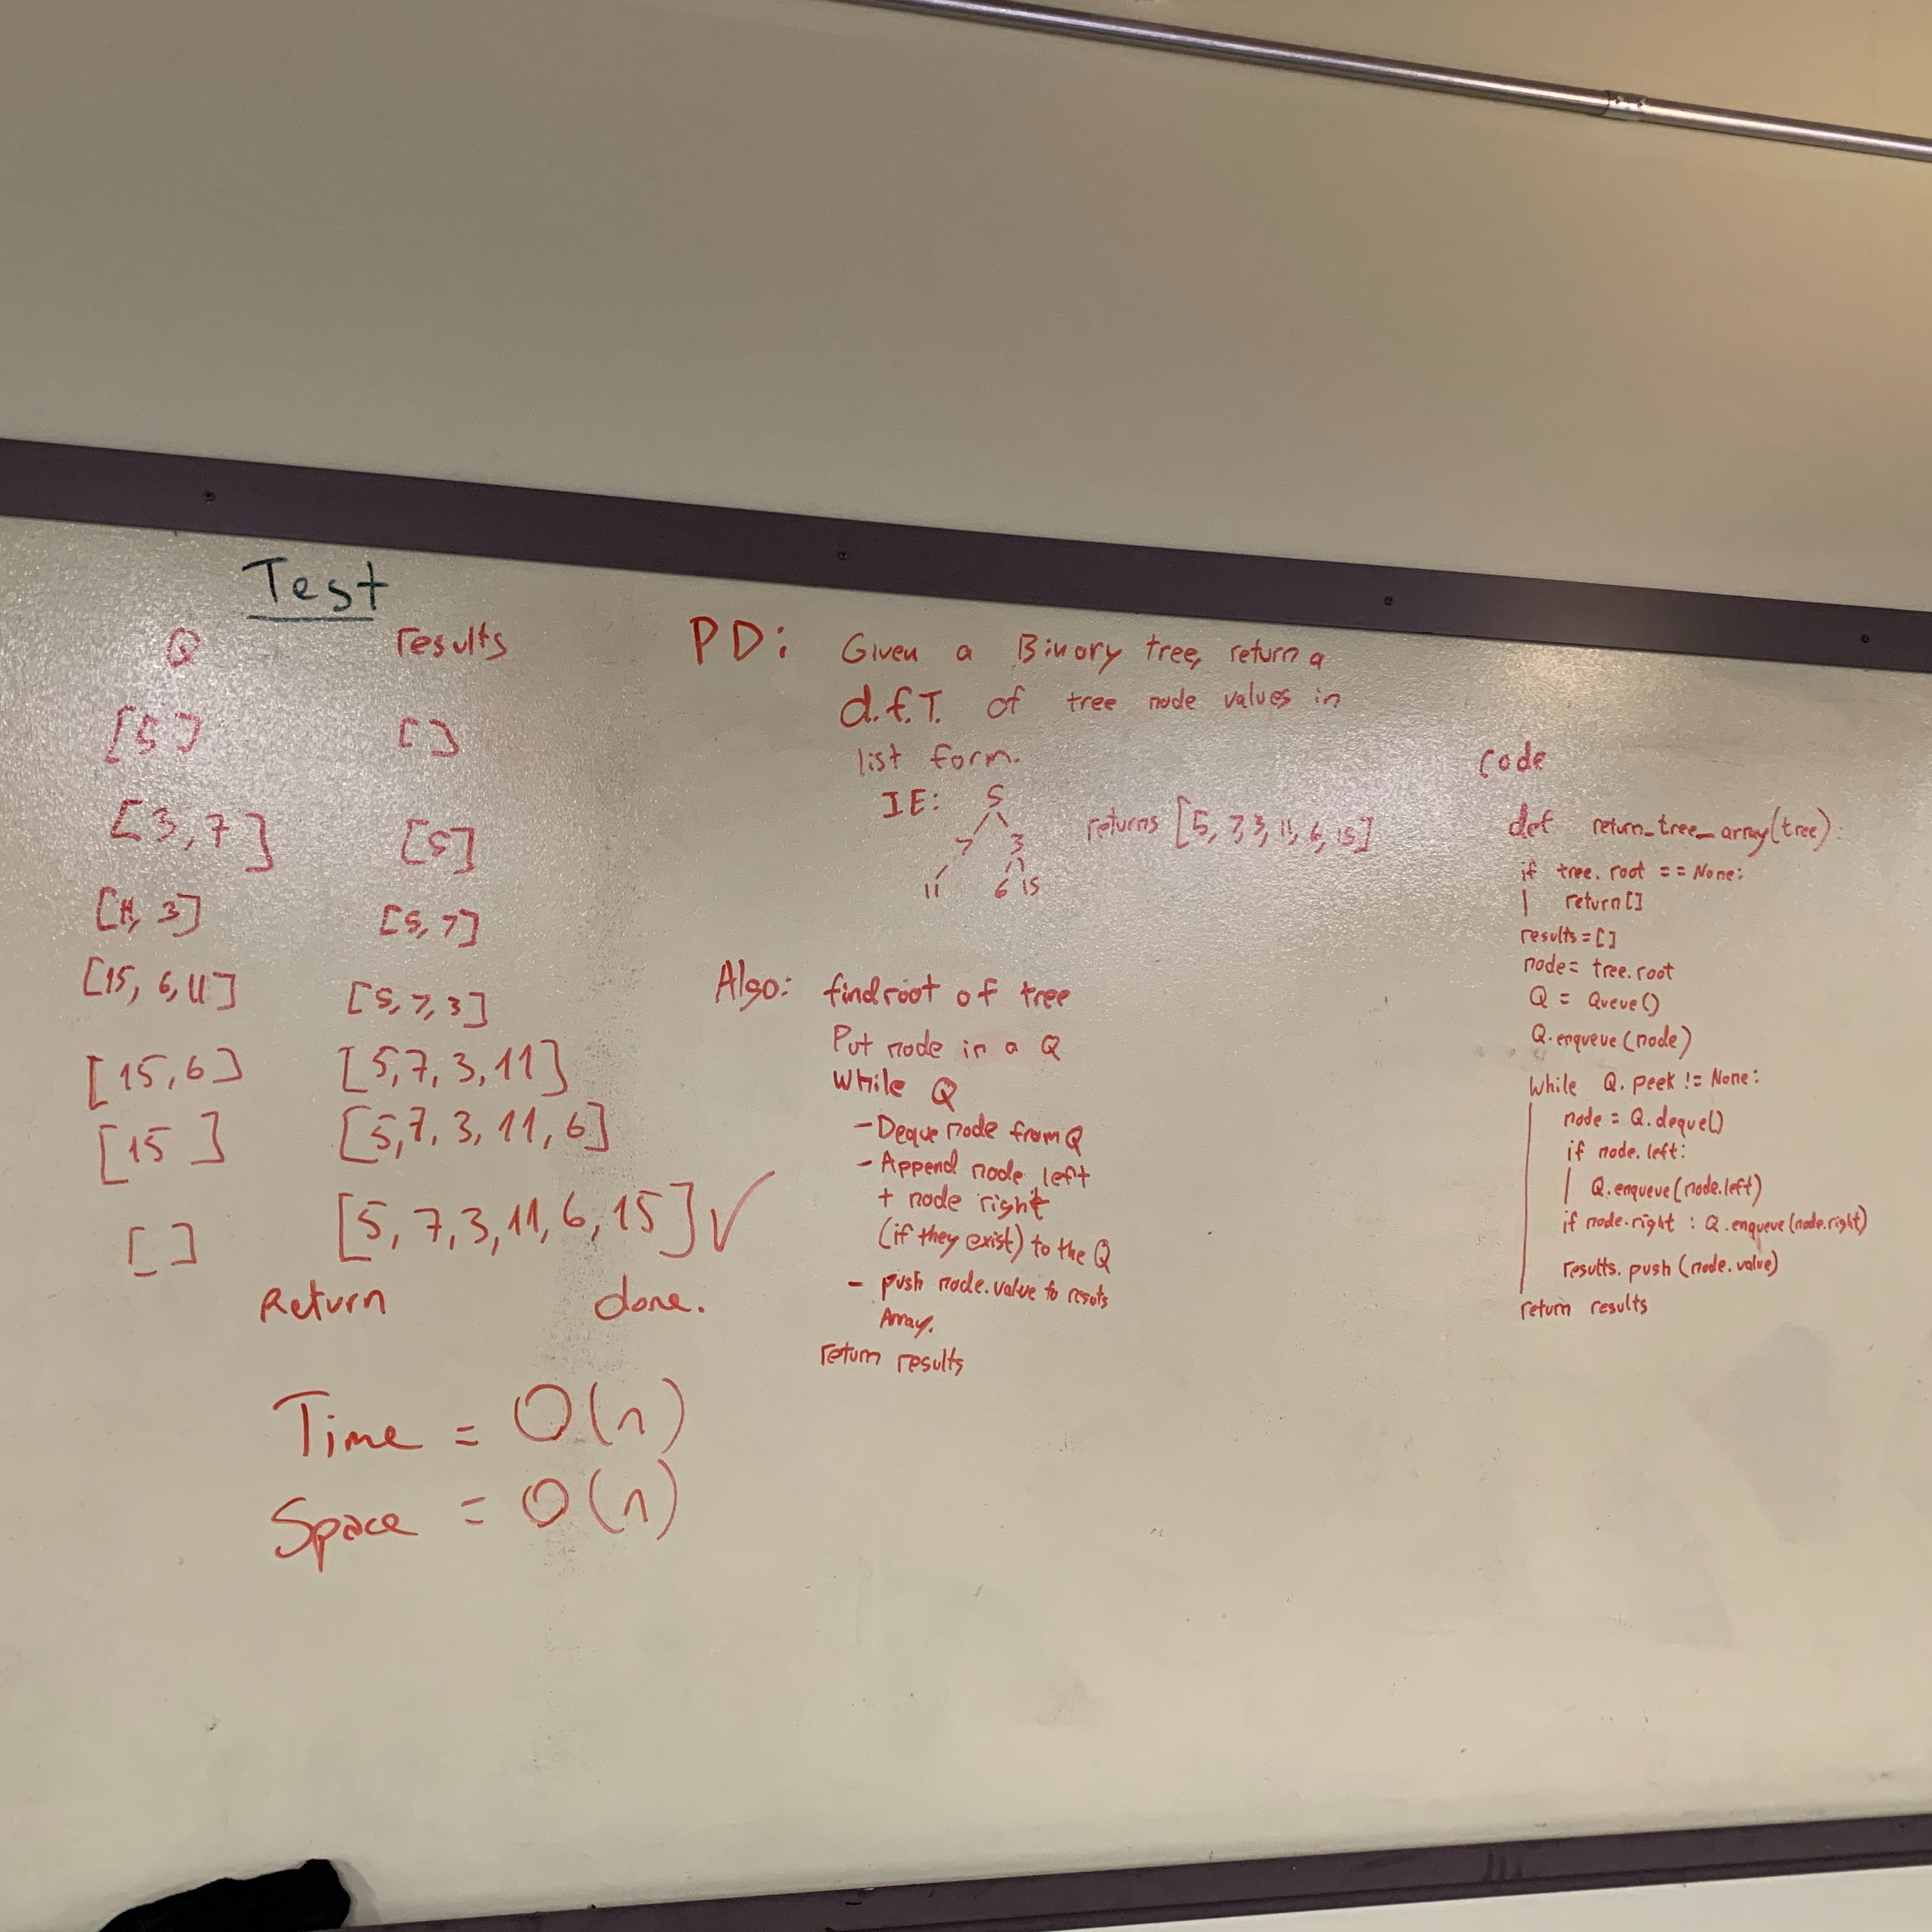 Test
Q results
[5] []
[3, 7] [5]
[11, 3] [5, 7]
[15, 6, 11] [5, 7, 3]
[15, 6] [5, 7, 3, 11]
[15] [5, 7, 3, 11, 6]
[] [5, 7, 3, 11, 6, 15] ✓
Return done.
Time = O(n)
Space = O(n)
PD: Given a Binary tree, return a
d.f.T. of tree node values in
list form.
IE: 5
7 3
11 6 15
returns [5, 7, 3, 11, 6, 15]
Also: find root of tree
Put node in a Q
While Q
- Deque node from Q
- Append node left
+ node right
(if they exist) to the Q
- push node.value to resuts
Array.
return results
code
def return_tree_array(tree):
if tree.root == None:
return []
results = []
node = tree.root
Q = Queue()
Q.enqueue(node)
While Q.peek != None:
node = Q.deque()
if node.left:
Q.enqueue(node.left)
if node.right : Q.enqueue(node.right)
results.push(node.value)
return results